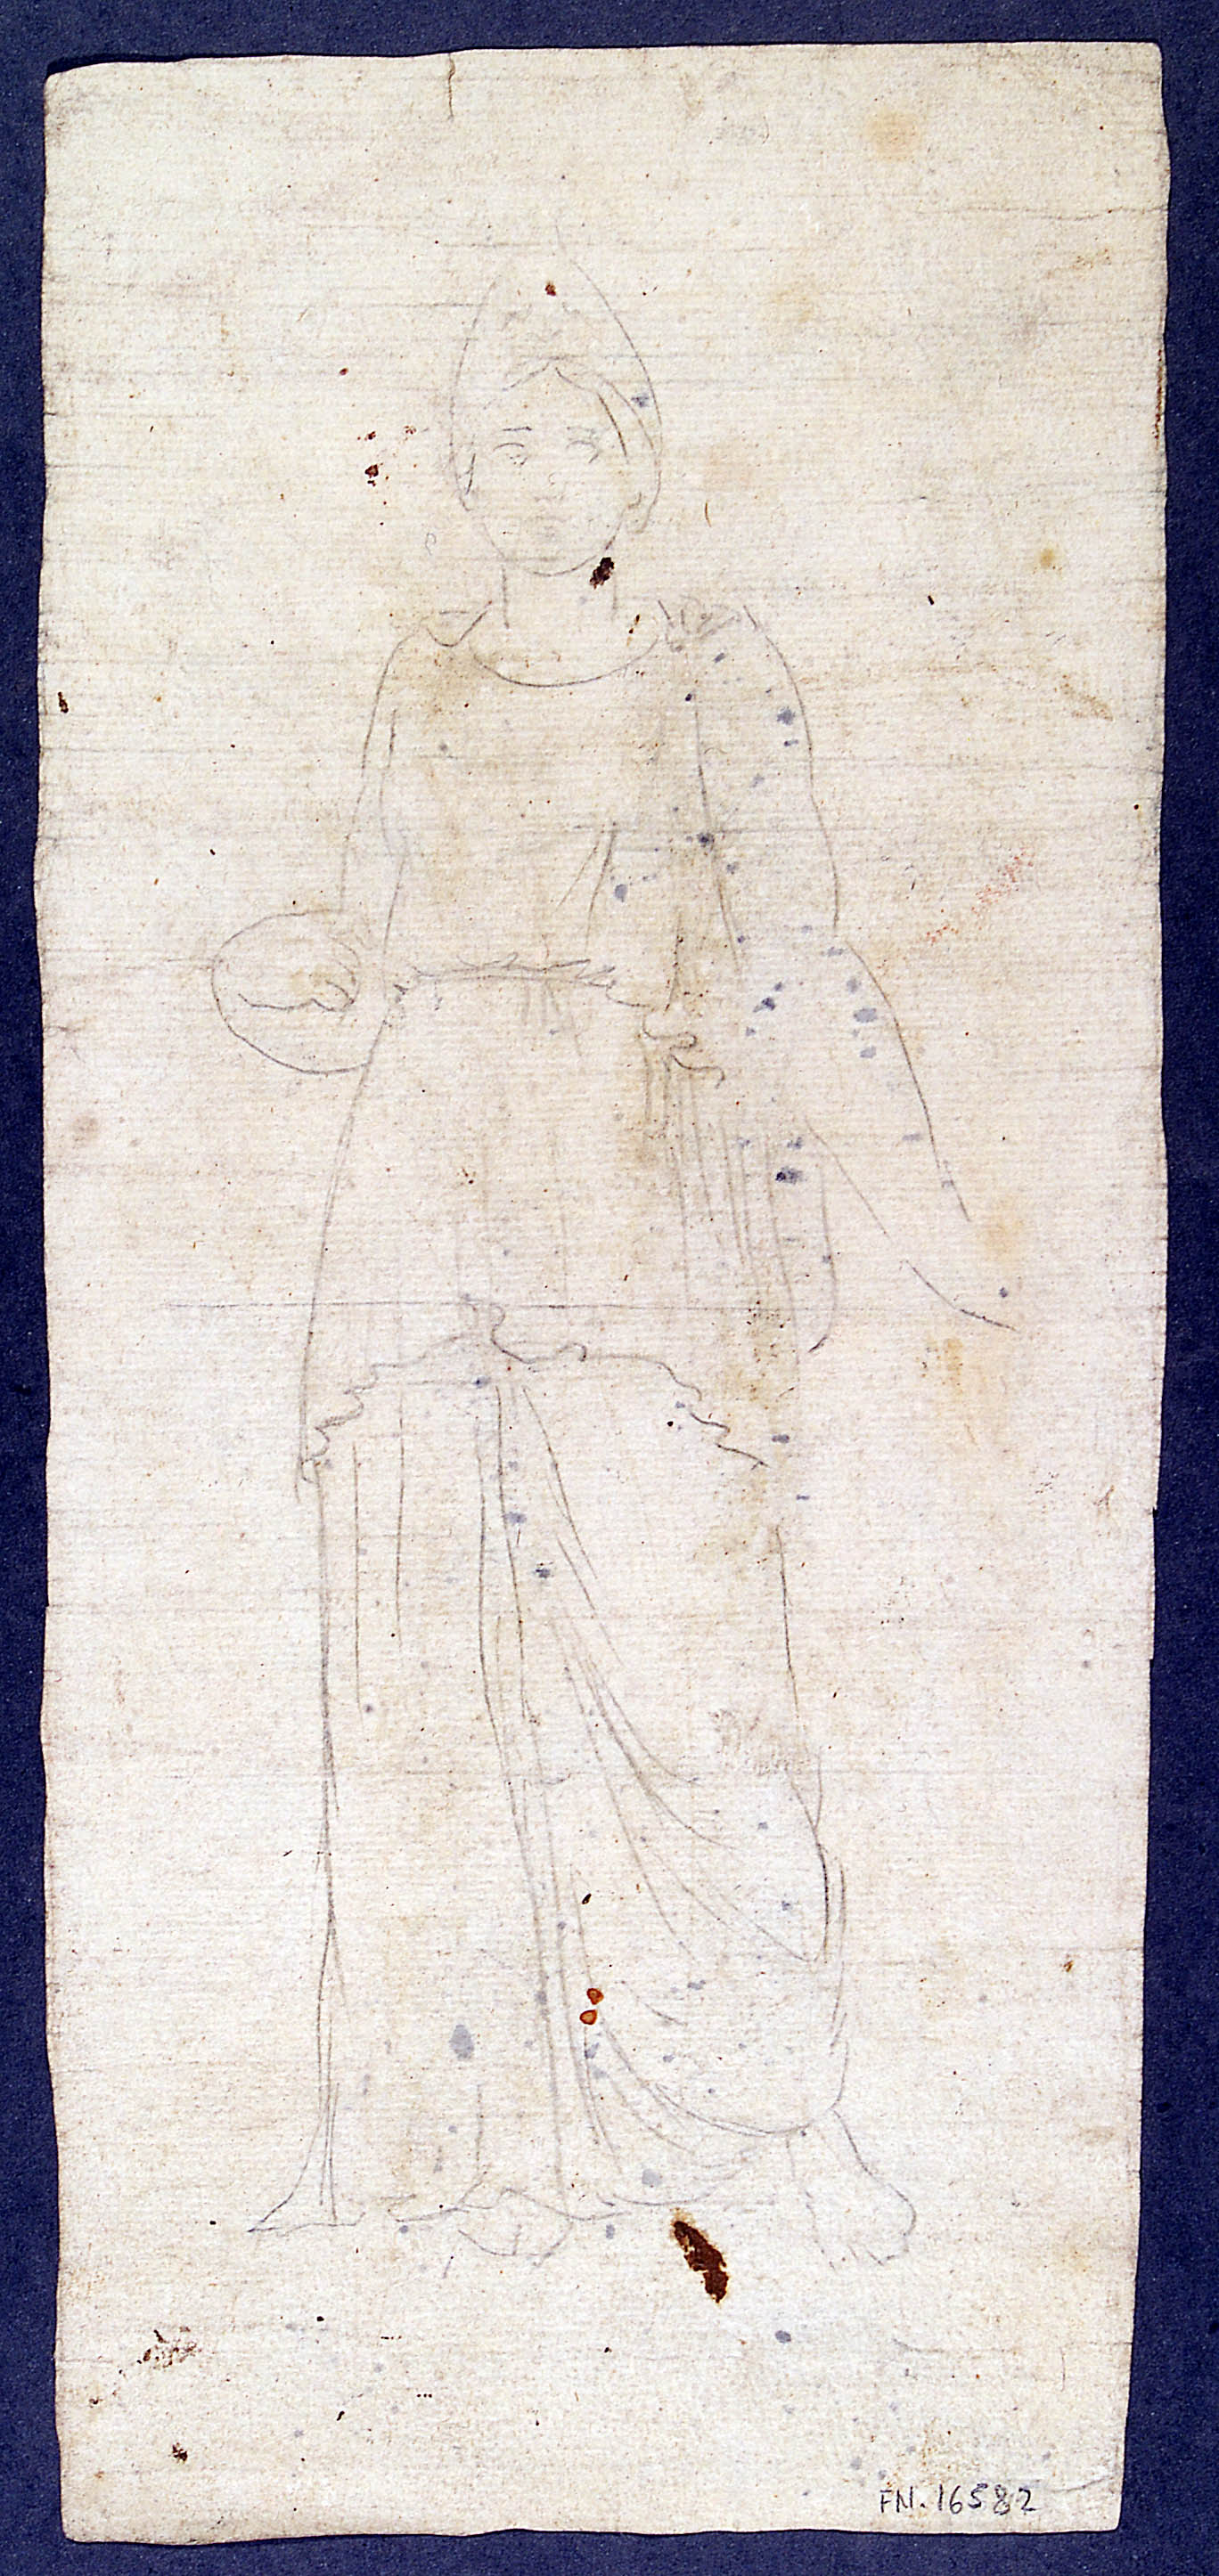 FN. 16582